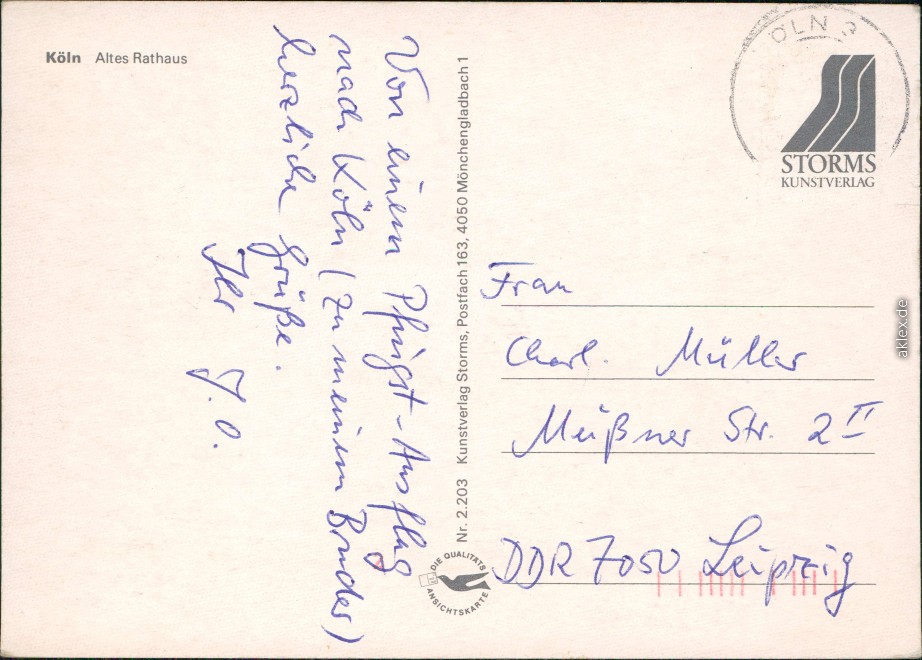 Köln Altes Rathaus
Von einem Pfingst-Ausflug
nach Köln (zu meinem Bruder)
herzliche Grüße.
Ihr J. O.
Nr. 2.203 Kunstverlag Storms, Postfach 163, 4050 Mönchengladbach 1
DIE QUALITÄTS
ANSICHTSKARTE
ÖLN
STORMS
KUNSTVERLAG
Frau
Charl. Müller
Meißner Str. 2 II
DDR 7050 Leipzig
aklex.de